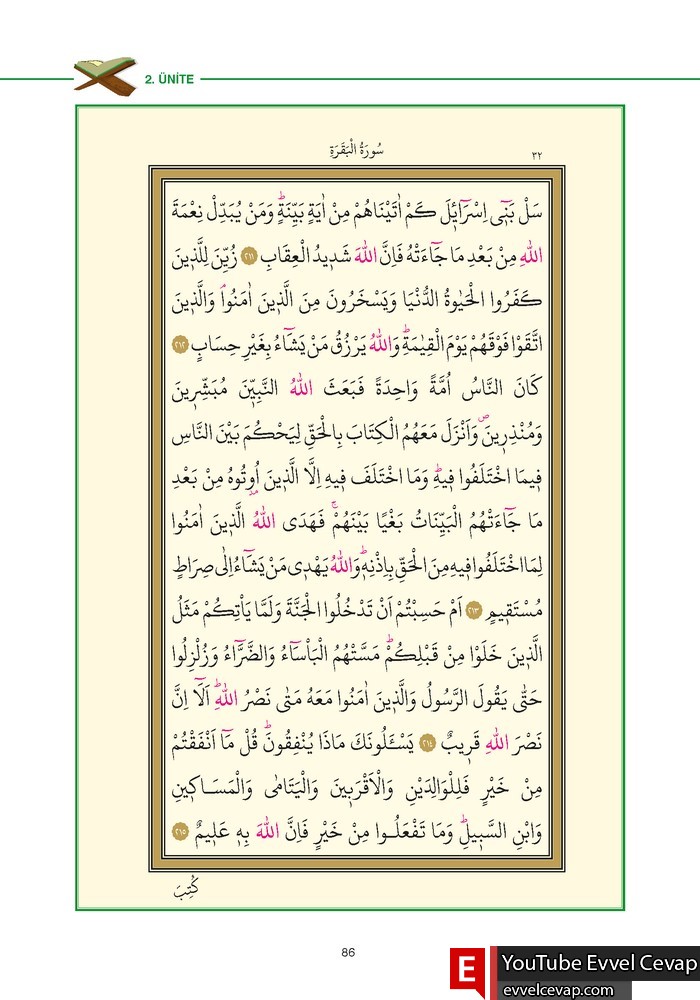 2. ÜNİTE
سُورَةُ الْبَقَرَةِ
٣٢
سَلْ بَنٖٓى اِسْرَٓائٖلَ كَمْ اٰتَيْنَاهُمْ مِنْ اٰيَةٍ بَيِّنَةٍؕ وَمَنْ يُبَدِّلْ نِعْمَةَ
اللّٰهِ مِنْ بَعْدِ مَا جَٓاءَتْهُ فَاِنَّ اللّٰهَ شَدٖيدُ الْعِقَابِ ﴿٢١١﴾ زُيِّنَ لِلَّذٖينَ
كَفَرُوا الْحَيٰوةُ الدُّنْيَا وَيَسْخَرُونَ مِنَ الَّذٖينَ اٰمَنُواۘ وَالَّذٖينَ
اتَّقَوْا فَوْقَهُمْ يَوْمَ الْقِيٰمَةِؕ وَاللّٰهُ يَرْزُقُ مَنْ يَشَٓاءُ بِغَيْرِ حِسَابٍ ﴿٢١٢﴾
كَانَ النَّاسُ اُمَّةً وَاحِدَةً فَبَعَثَ اللّٰهُ النَّبِيّٖنَ مُبَشِّرٖينَ
وَمُنْذِرٖينَࣕ وَاَنْزَلَ مَعَهُمُ الْكِتَابَ بِالْحَقِّ لِيَحْكُمَ بَيْنَ النَّاسِ
فٖيمَا اخْتَلَفُوا فٖيهِؕ وَمَا اخْتَلَفَ فٖيهِ اِلَّا الَّذٖينَ اُو۫تُوهُ مِنْ بَعْدِ
مَا جَٓاءَتْهُمُ الْبَيِّنَاتُ بَغْيًا بَيْنَهُمْۚ فَهَدَى اللّٰهُ الَّذٖينَ اٰمَنُوا
لِمَا اخْتَلَفُوا فٖيهِ مِنَ الْحَقِّ بِاِذْنِهٖؕ وَاللّٰهُ يَهْدٖى مَنْ يَشَٓاءُ اِلٰى صِرَاطٍ
مُسْتَقٖيمٍ ﴿٢١٣﴾ اَمْ حَسِبْتُمْ اَنْ تَدْخُلُوا الْجَنَّةَ وَلَمَّا يَاْتِكُمْ مَثَلُ
الَّذٖينَ خَلَوْا مِنْ قَبْلِكُمْؕ مَسَّتْهُمُ الْبَاْسَٓاءُ وَالضَّرَّٓاءُ وَزُلْزِلُوا
حَتّٰى يَقُولَ الرَّسُولُ وَالَّذٖينَ اٰمَنُوا مَعَهُ مَتٰى نَصْرُ اللّٰهِؕ اَلَٓا اِنَّ
نَصْرَ اللّٰهِ قَرٖيبٌ ﴿٢١٤﴾ يَسْـَٔلُونَكَ مَاذَا يُنْفِقُونَؕ قُلْ مَٓا اَنْفَقْتُمْ
مِنْ خَيْرٍ فَلِلْوَالِدَيْنِ وَالْاَقْرَبٖينَ وَالْيَتَامٰى وَالْمَسَاكٖينِ
وَابْنِ السَّبٖيلِؕ وَمَا تَفْعَلُوا مِنْ خَيْرٍ فَاِنَّ اللّٰهَ بِهٖ عَلٖيمٌ ﴿٢١٥﴾
كُتِبَ
86
E YouTube Evvel Cevap
evvelcevap.com